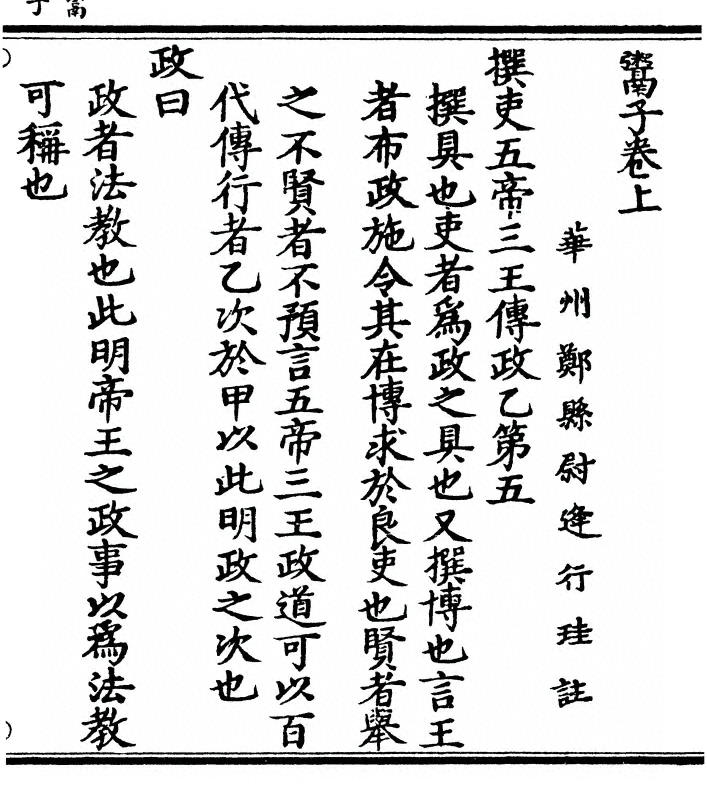 鬻子
鬻子卷上
華州鄭縣尉逄行珪註
撰吏五帝三王傳政乙第五
撰具也吏者為政之具也又撰博也言王
者布政施令其在博求於良吏也賢者舉
之不賢者不預言五帝三王政道可以百
代傳行者乙次於甲以此明政之次也
政曰
政者法教也此明帝王之政事以為法教
可稱也